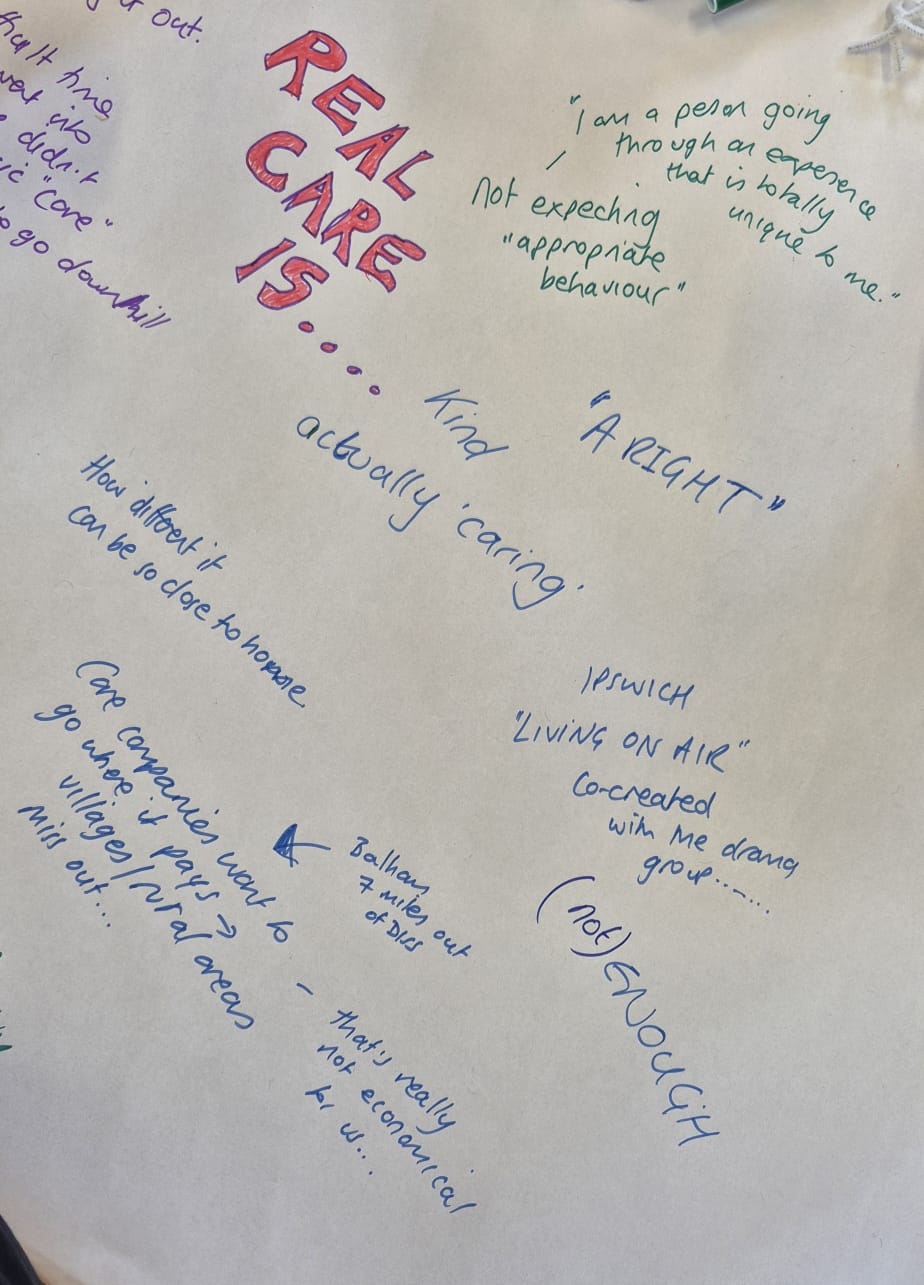 out.
time
into
didn't
"care"
to go downhill
REAL
CARE
IS....
"I am a person going
through an experence
that is totally
unique to me."
Not expecting
"appropriate
behaviour"
Kind
actually 'caring'
"A RIGHT"
How different it
can be so close to home
IPSWICH
"LIVING ON AIR"
Co-created
with me drama
group.......
(not) ENOUGH
Care companies want to
go where it pays →
villages/rural areas
miss out...
← 
7 miles out
of Diss
– that's really
not economical
for us...